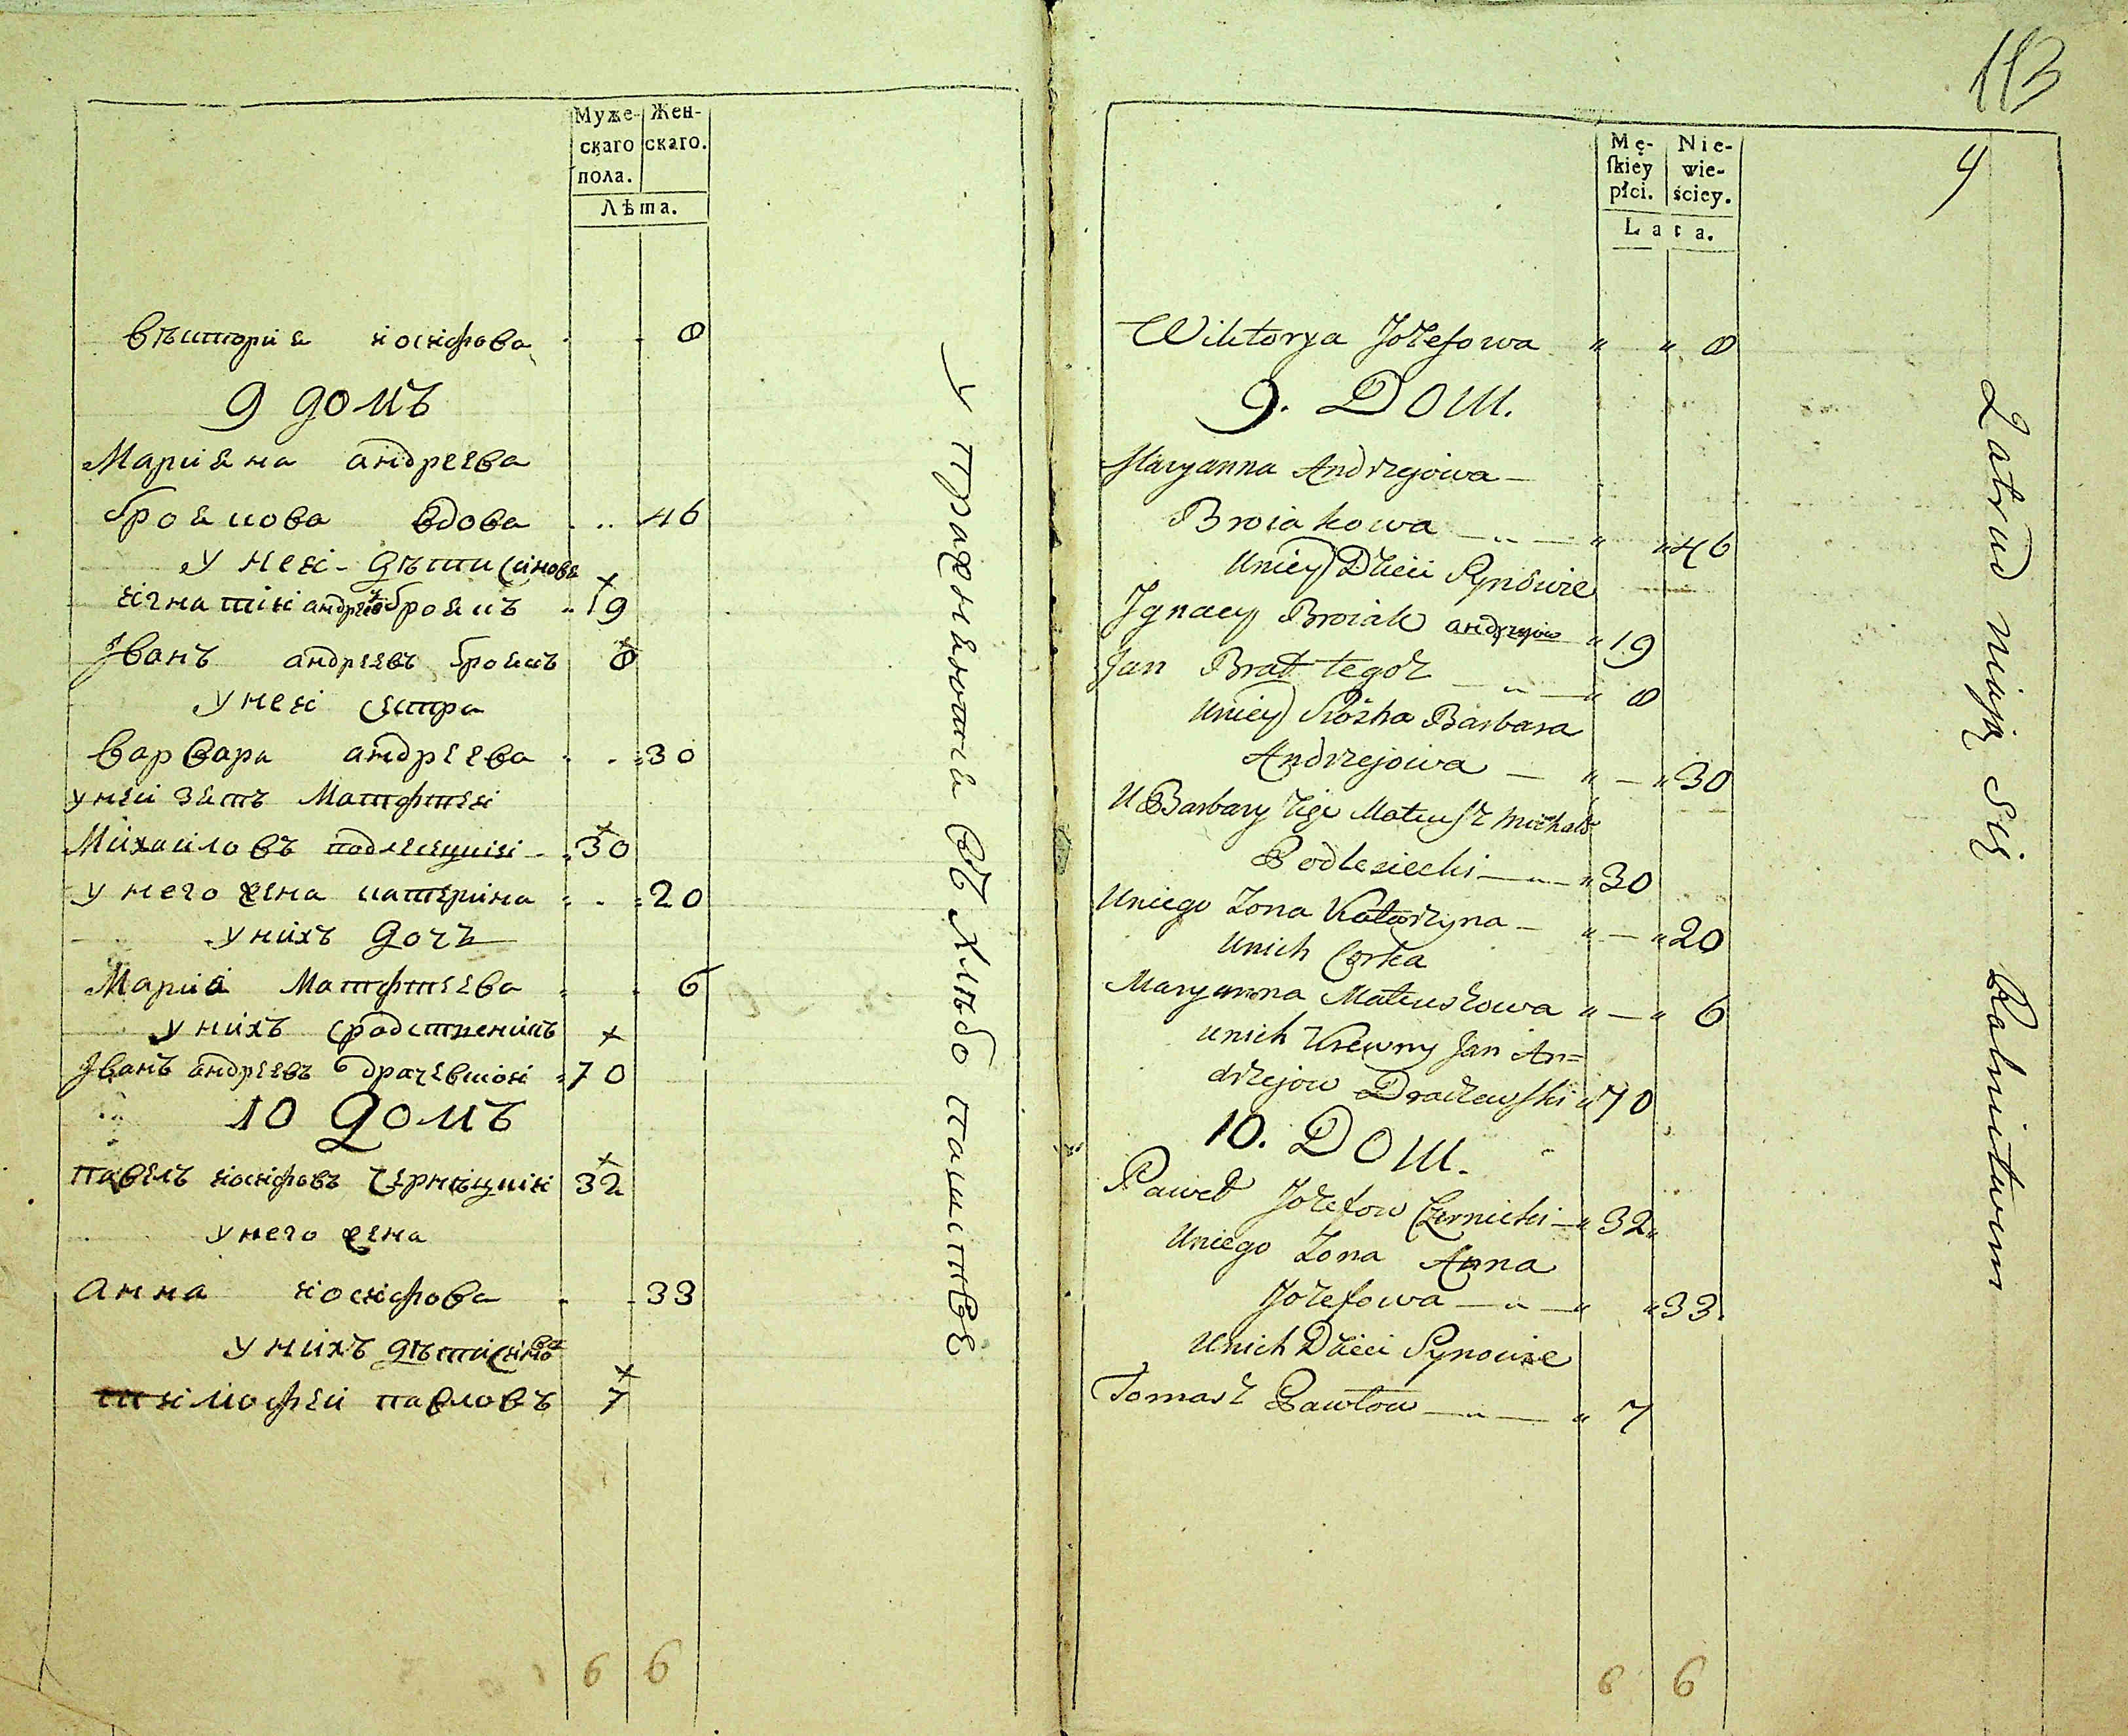 Муже- Жен-
скаго скаго.
пола.
Лѣта.
Вѣкторіа Іосифова 8
9 домъ
Мариана андреева
броякова вдова 46
у неи дѣти синове
игнатіи андреевъ броякъ 19
Іванъ андреевъ броякъ 8
у неи сестра
варвара андреева 30
у неи зять Матфтеи
Михаиловъ подлесецкіи 30
у него жена катерина 20
у нихъ дочъ
Мариа Матфтеева 6
у нихъ сродственикъ
Іванъ андреевъ драчевскіи 70
10 домъ
павелъ іосифовъ Чернѣцкіи 32
у него жена
анна іосифова 33
у нихъ дѣти синове
тимофеи павловъ 7
6 6
упражняются въ хлѣбо пашистве
113
4
Mę- Nie-
ſkiey wie-
płci. ściey.
Lata.
Wiktorya Jozefowa " " 8
9. Dom.
Maryanna Andrzejowa —
Broiakowa — " — " " 46
Uniey Dzieci Synowie
Ignacy Broiak andrzejow " 19
Jan Brat tegoz — " — " 8
Uniey Siostra Barbara
Andrzejowa — " — " 30
U Barbary Zięć Mateusz Michało
Podlesiecki — " — " 30
Uniego Zona Katarzyna — " — " 20
Unich Corka
Maryanna Mateuszowa " — " 6
Unich Krewny Jan An=
drzejow Draczewski " 70
10. Dom.
Paweł Jozefow Czernicki — " 32 "
Uniego Zona Anna
Jozefowa — " — " " 33.
Unich Dzieci Synowie
Tomasz Pawłow — " — " 7
6 6
Zatrud niają się Rolnictwem